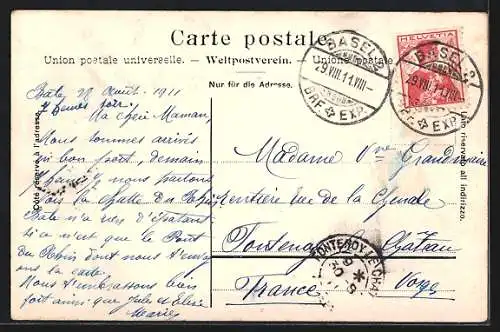 Carte postale.
Union postale universelle. – Weltpostverein. – Unione postale
Nur für die Adresse.
Côté réservé à l'adresse.
Lato riservato all indirizzo.
HELVETIA
BASEL 2
29.VIII.11.VIII–
BRF. EXP.
BASEL 2
29.VIII.11.VIII–
BRF. EXP.
Août 1911
7 heures soir
Ma chère Maman,
Nous sommes arrivés
à bon port, demain
nous partons
la Chutte du Rhin
n'a rien d'
si ce n'est que le Pont
du Rhin dont nous
la carte.
Nous t'embrassons bien
fort ainsi que Jules et
Madame Vve
rentière rue de la
Fontenoy le Château
Vosges
France
FONTENOY-LE-CHAT